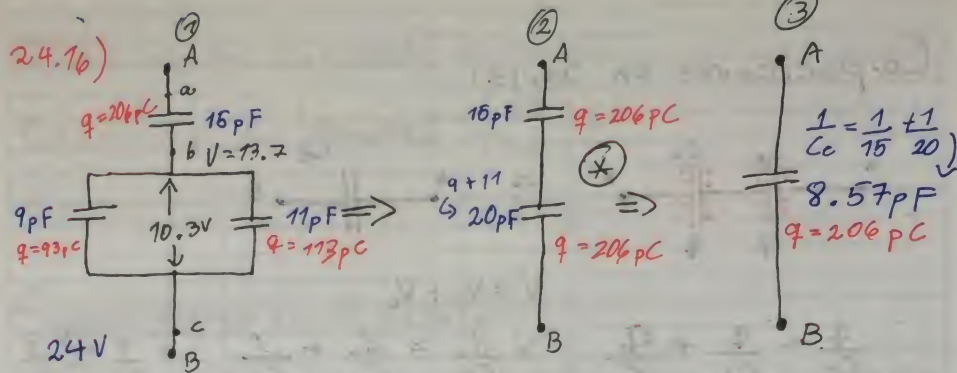 24.16)
①
A
a
q=206pC
15pF
b V=13.7
9pF
q=93pC
10.3V
11pF
q=113pC
c
24V
B
⇒
②
A
15pF
q=206pC
9+11
↳ 20pF
q=206pC
B
*
⇒
③
A
1/Ce = 1/15 + 1/20
8.57pF
q=206pC
B